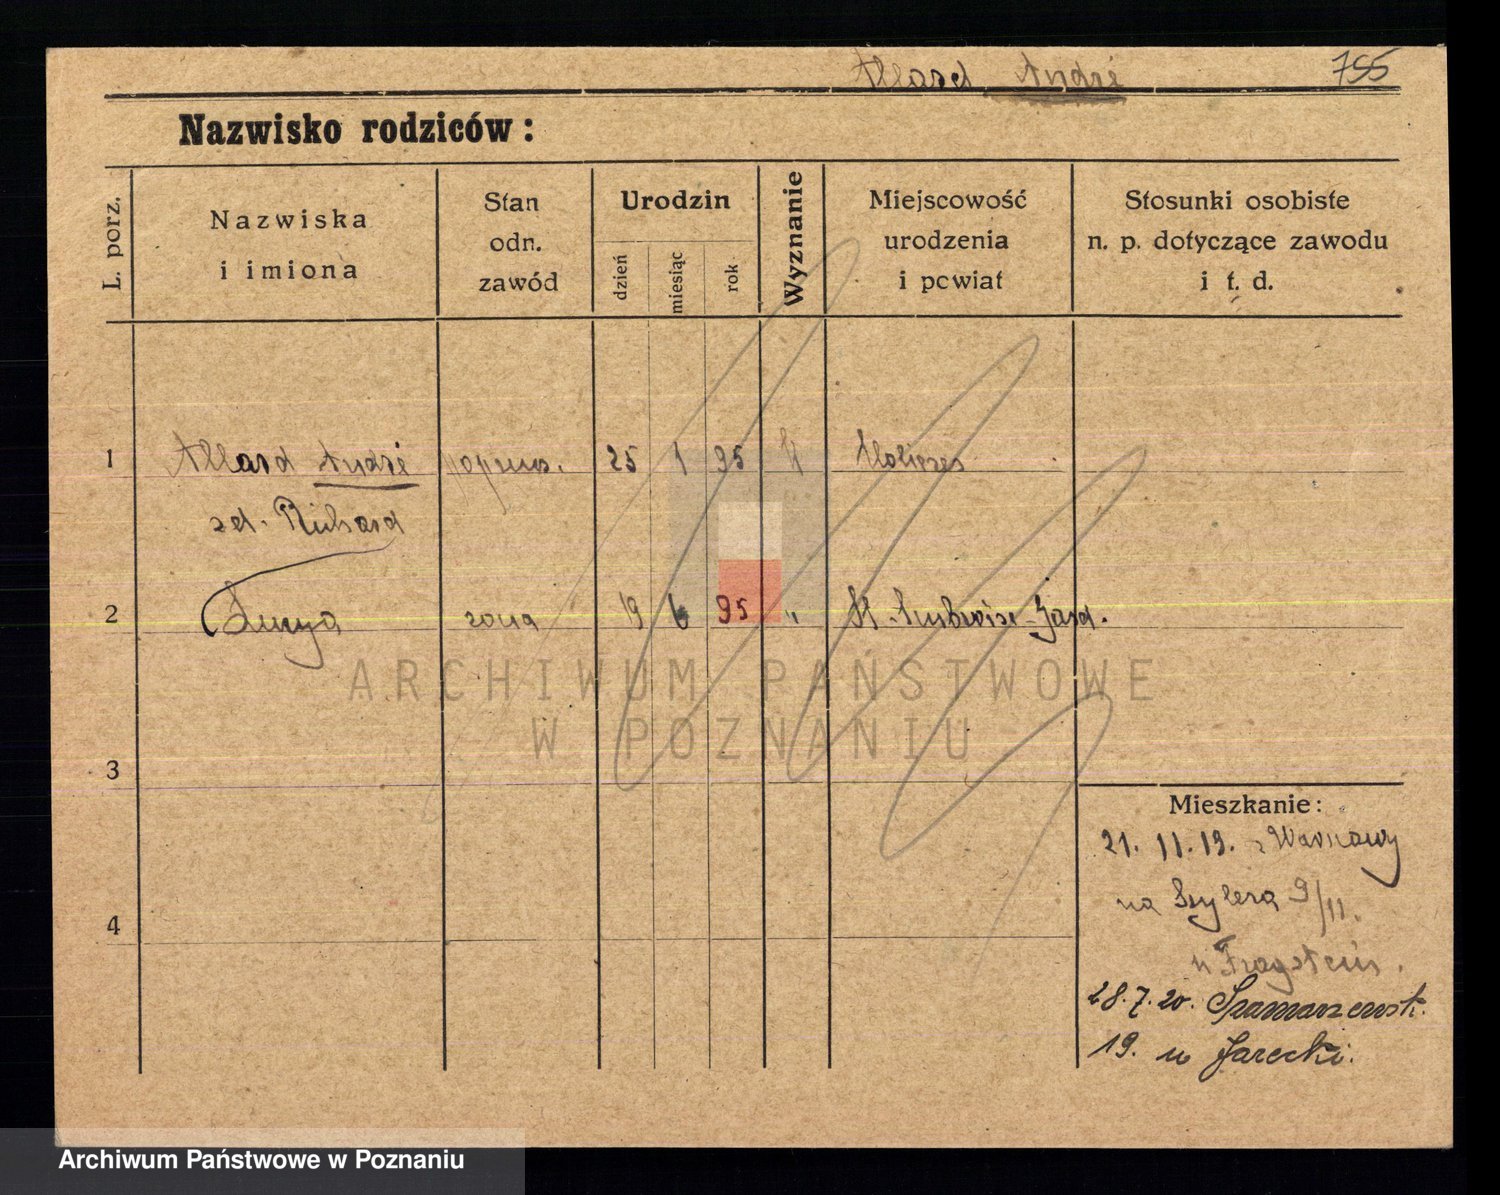 Allard André 755
Nazwisko rodziców:
L. porz.
Nazwiska
i imiona
Stan
odn.
zawód
Urodzin
dzień
miesiąc
rok
Wyznanie
Miejscowość
urodzenia
i powiat
Stosunki osobiste
n. p. dotyczące zawodu
i t. d.
1 Allard André 25 1 95
Richard
2 żona 19 6 95 " St.
3
4
Mieszkanie:
21. 11. 19. z Warszawy
na 9/11.
u
28.7.20.
19. u Jarecki.
ARCHIWUM PAŃSTWOWE
W POZNANIU
Archiwum Państwowe w Poznaniu